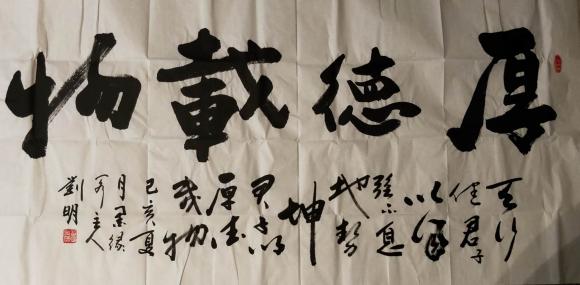 厚德載物
天行
健君子
以自
強不息
地勢
坤
君子以
厚德
載物
己亥夏
月墨緣
齋主人
劉明